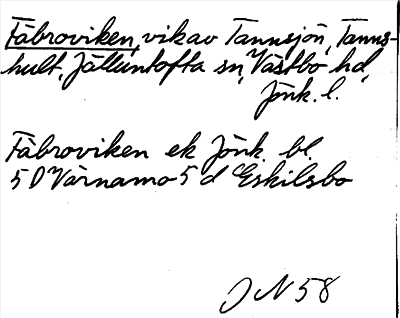 Fåbroviken, vik av Tannsjön, Tanns-
hult, Jälluntofta sn, Västbo hd,
Jönk. l.
Fåbroviken ek Jönk. bl.
5 D Värnamo 5 d Eskilsbo
J N 58